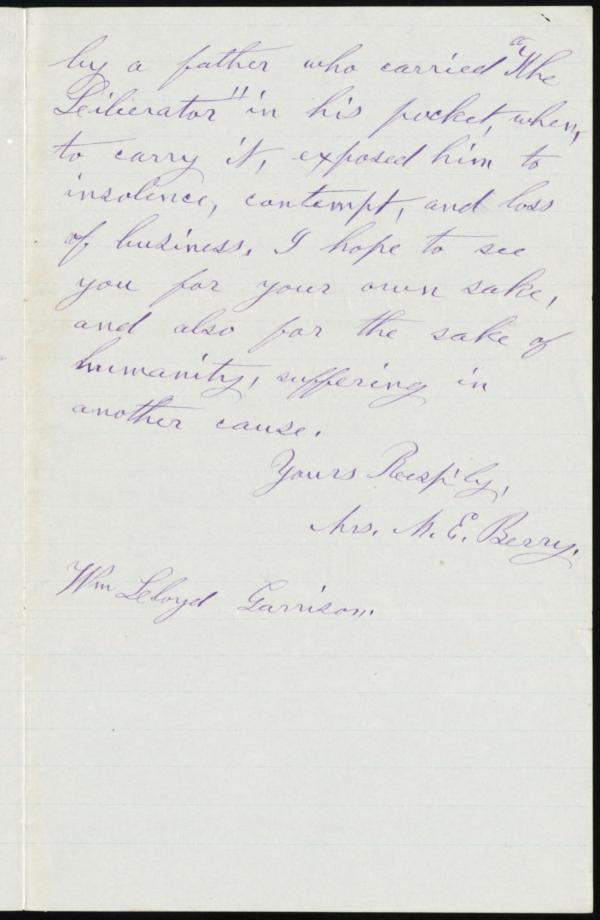 by a father who carried "The
Liberator" in his pocket, when,
to carry it, exposed him to
insolence, contempt, and loss
of business. I hope to see
you for your own sake,
and also for the sake of
humanity, suffering in
another cause.
Yours Resp'ly,
Mrs. M. E. Berry.
Wm Lloyd Garrison.